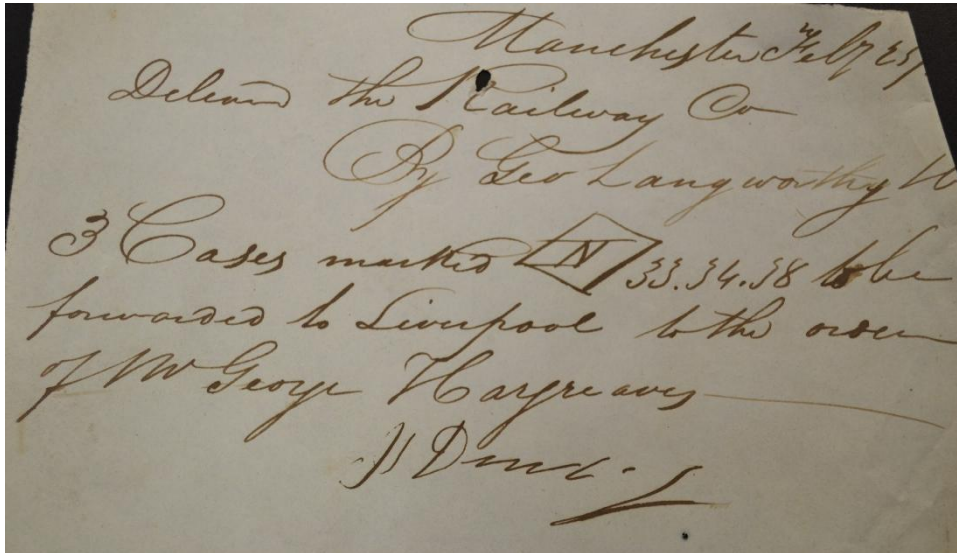 Manchester Feby
Deliverd the Railway Co
By Geo Langworthy
3 Cases marked N 33.34.38 to be
forwarded to Liverpool to the order
of Mr George Hargreaves